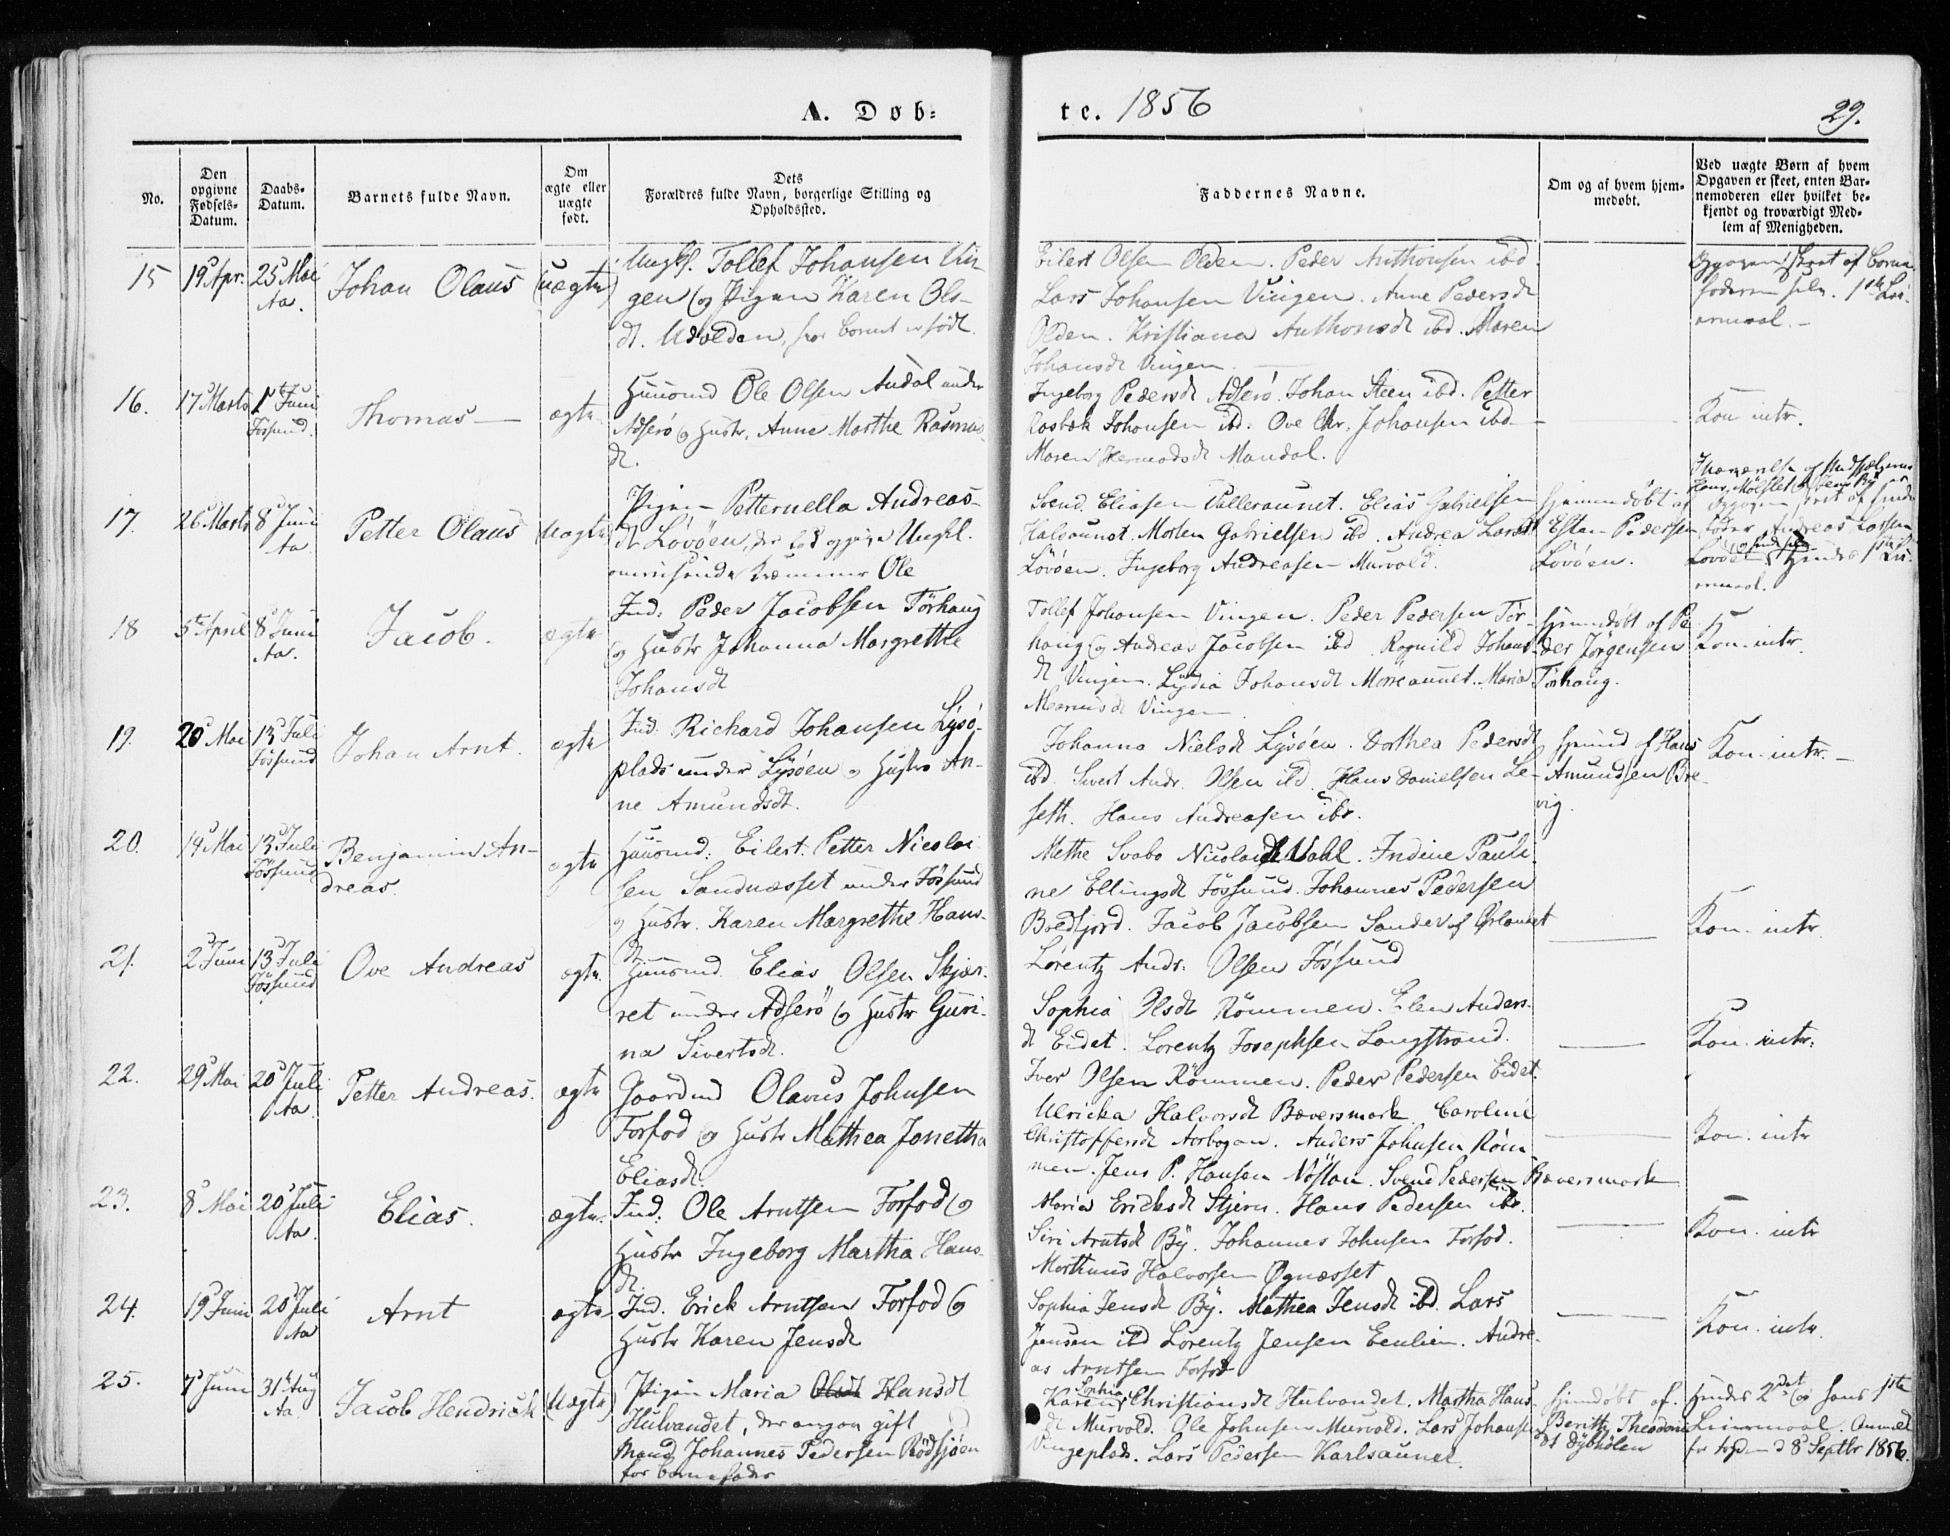 A. Døb=
te. 1856
29.
No.
Den opgivne Fødsels-Datum.
Daabs-Datum.
Barnets fulde Navn.
Om ægte eller uægte født.
Dets Forældres fulde Navn, borgerlige Stilling og Opholdssted.
Faddernes Navne.
Om og af hvem hjemmedøbt.
Ved uægte Børn af hvem Opgaven er skeet, enten Barnemoderen eller hvilket bekjendt og troværdigt Medlem af Menigheden.
15 19 Apr. 25 Mai Aa. Johan Olaus (uægte)
Ungkl. Tollef Johansen Vin-
gen og Pigen Karen Ols-
dt. Udolden, hvor Barnet er født.
Eilert Olsen Olden. Peder Anthonsen ibd.
Lars Johansen Vingen. Anne Pedersdt
Olden. Kristiana Anthonsdt ibd. Maren
Johansdt Vingen.
16. 17 Marts 1 Juni Fössund. Thomas — ægte
Huusmd Ole Olsen Audal under
Adserö og Hustr. Anne Marthe Rasmus-
dt.
Ingeborg Pedersdt Adserö. Johan Steen ibd. Petter
Rosbek Johansen ibd. Ove Chr. Johansen ibd.
Maren Hermodsdt Mandal.
Kon. intr.
17. 26 Marts 8 Juni Aa Petter Olaus Uægte
Pigen Petternella Andreas-
dt Lövöen, Ungkl.
Kræmmer Ole
Svend Eliasen Valleraunet. Elias Gabrielsen
Halsaunet. Morten Gabrielsen ibd. Andrea Larsdt
Lövöen. Ingeborg Andreasen Murvold.
Hjemmedøbt af
Esten Pedersen
Lövöen.
18 5 April 8 Juni Aa. Jacob. ægte
Ind. Peder Jacobsen Törhaug
og Hustr Johanna Margrethe
Johansdt
Tollef Johansen Vingen. Peder Pedersen Tör-
haug og Andreas Jacobsen ibd Ragnild Johans-
dt Vingen. Lydia Johansdt Moreaunet. Maria
Vingen
Hjemmdöbt af Pe-
der Jörgensen
Törhaug.
Kon. intr.
19. 20 Mai 13 Juli Fössund Johan Arnt. ægte
Ind. Richard Johansen Lysö-
plads under Lysöen og Hustr An-
ne Amundsdt.
Johanna Nielsdt Lysöen. Dorthea Pedersdt
ibd. Sivert Andr. Olsen ibd. Hans Danielsen Le-
seth. Hans Andreasen ibd.
Hjemd af Hans
Amundsen Bre-
vig.
Kon. intr. —
20. 14 Mai 13 Juli Fössund Benjamin An-
dreas. ægte
Huusmd: Eilert Petter Nicolai
sen Sandnæsset under Fössund
og Hustr. Karen Margrethe Hans-
dt
Methe Svabo Nicolaidt Vahl. Indine Pauli-
ne Ellingsdt Fössund. Johannes Pedersen
Boldfjord. Jacob Jacobsen Sande af Ørlandet
Lorentz Andr. Olsen Fössund
Kon. intr.
21. 2 Juni 13 Juli Fössund Ove Andreas ægte.
Huusmd. Elias Olsen Skjær-
ret under Adserö og Hustr Guri-
na Sivertsdt.
Sophia Olsdt Römmen. Elen Anders-
dt Eidet. Lorentz Josephsen Langstrand.
Iver Olsen Römmen. Peder Pedersen Eidet.
Kon. intr.
22. 29 Mai 20 Juli Aa. Petter Andreas. ægte
Gaardmd Olavus Johnsen
Forfod og Hustr Mathea Jonetha
Eliasdt.
Ulricka Halvorsdt Bæversmark. Caroline
Christoffersdt Aarbogan. Anders Johnsen Röm-
men. Jens P. Hansen Nöstan. Svend Pedersen Bæversmark
Kon. intr
23. 8 Mai 20 Juli Aa. Elias. ægte.
Ind. Ole Arntsen Forfod og
Hustr Ingeborg Martha Hans-
dt.
Maria Ericksdt Stjern. Hans Pedersen ibd.
Siri Arntsdt By. Johannes Johnsen Forfod.
Morthinus Halvorsen Øgnæsset
Kon. intr
24. 19 Juni 20 Juli Aa Arnt ægte
Ind. Erick Arntsen Forfod og
Hustr Karen Jensdt
Sophia Jensdt By. Mathea Jensdt ibd. Lars
Jensen ibd Lorentz Jensen Eenlien. Andre-
as Arntsen Forfod
Kon. intr.
25. 7 Juni 31 Aug Aa. Jacob Hendrick (Uægte)
Pigen Maria Olsdt Hansdt
Hulvandet, der angav gift
Mand Johannes Pedersen Rödsjöen
for barnefader
Karen Sophia Christiansdt Hulvandet. Martha Hans-
dt Murvold. Ole Johnsen Murvold. Lars Johansen
Vingeplads. Lars Pedersen Karlsaunet.
Hjemdöbt af.
Beritte Theodori
dt Dybhölen
Hendes 2det og hans 1ste
Leiermaal. Anmeldt
for Fogden d 8 Septbr 1856.